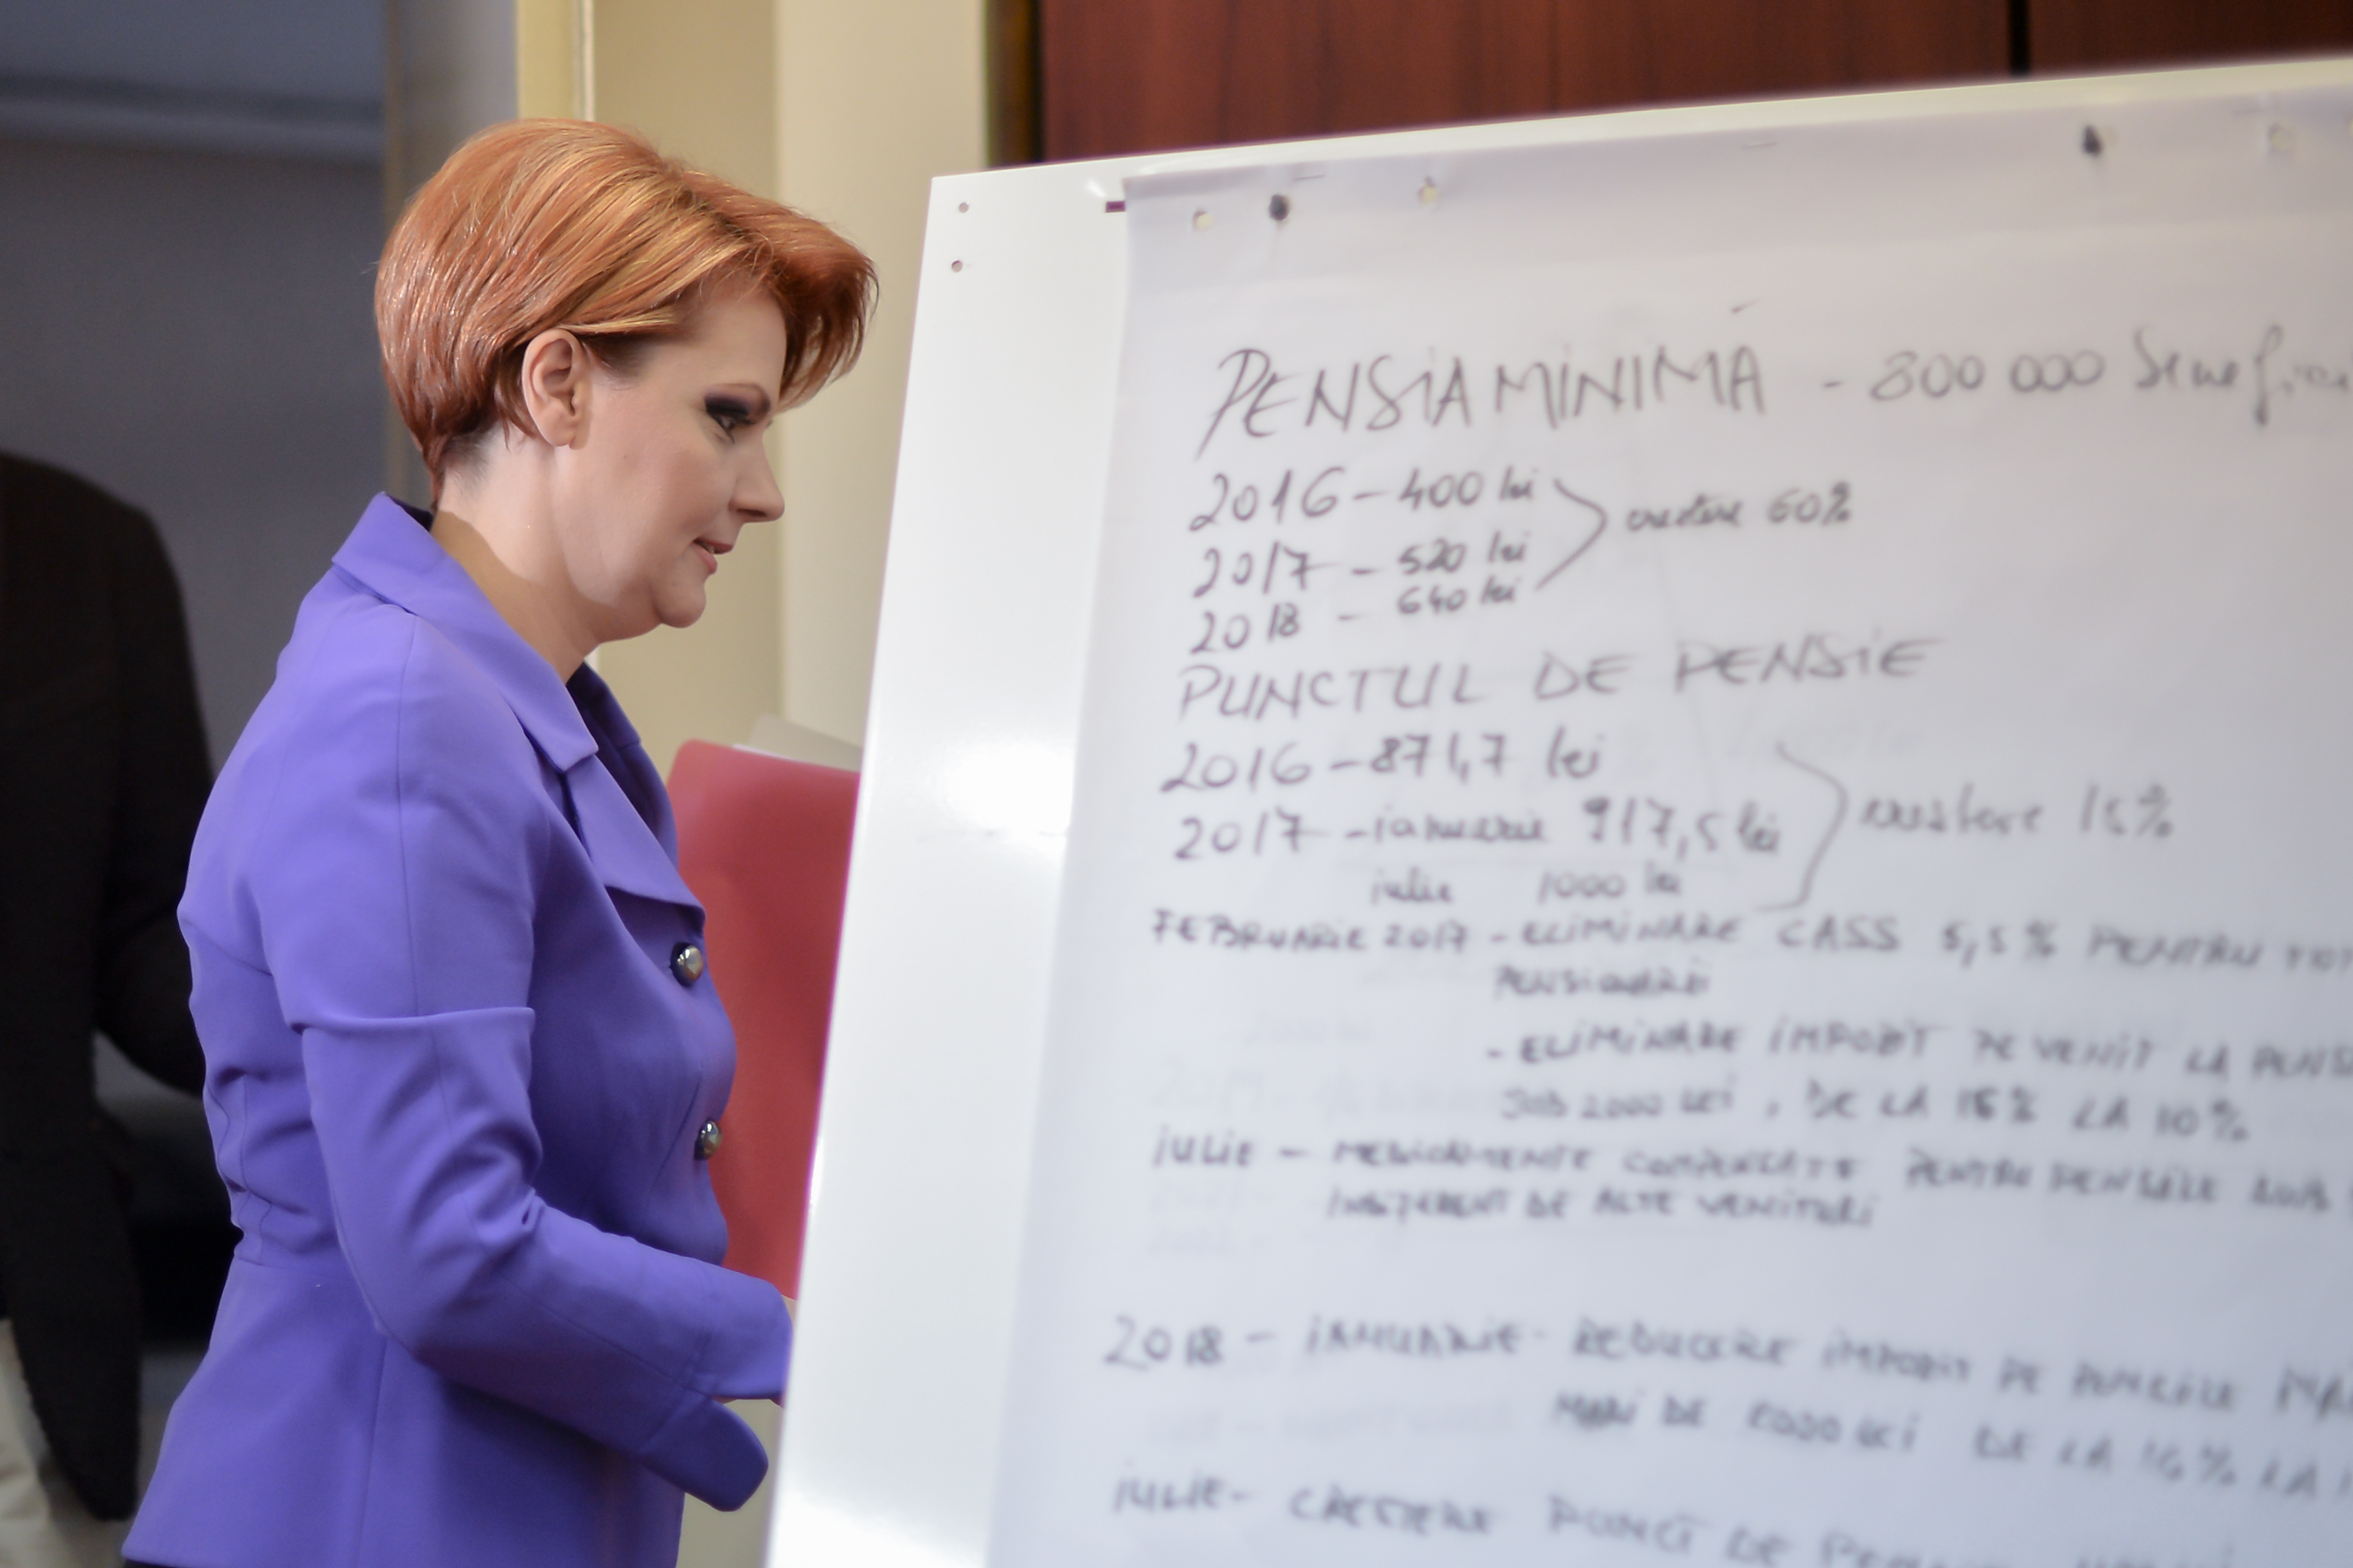 PENSIA MINIMĂ - 800 000
2016 - 400 lei
creștere 60%
2017 - 520 lei
2018 - 640 lei
PUNCTUL DE PENSIE
2016 - 871,7 lei
2017 - ianuarie 917,5 lei
creștere 15%
iulie 1000 lei
FEBRUARIE 2017 - ELIMINARE CASS 5,5% PENTRU
PENSIONARII
- ELIMINARE IMPOZIT PE VENIT LA
SUB 2000 LEI, DE LA 16% LA 10%
IULIE - MEDICAMENTE COMPENSATE PENTRU PENSIILE SUB
INDIFERENT DE ALTE VENITURI
2018 - IANUARIE - REDUCERE IMPOZIT PE PENSIILE
MARI DE 2000 LEI DE LA 16% LA
IULIE - CREȘTERE PUNCT DE